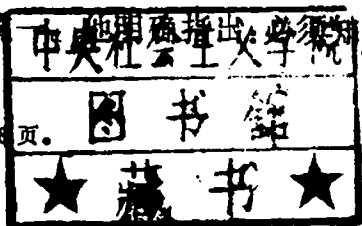 中央社会主义学院
图书馆
页。
★藏书★